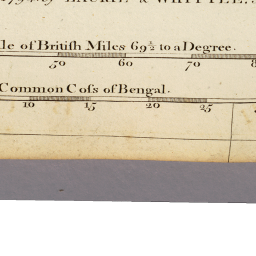 1794. by LAURIE & WHITTLE.
le of British Miles 69½ to a Degree.
50 60 70 8
Common Coss of Bengal.
10 15 20 25